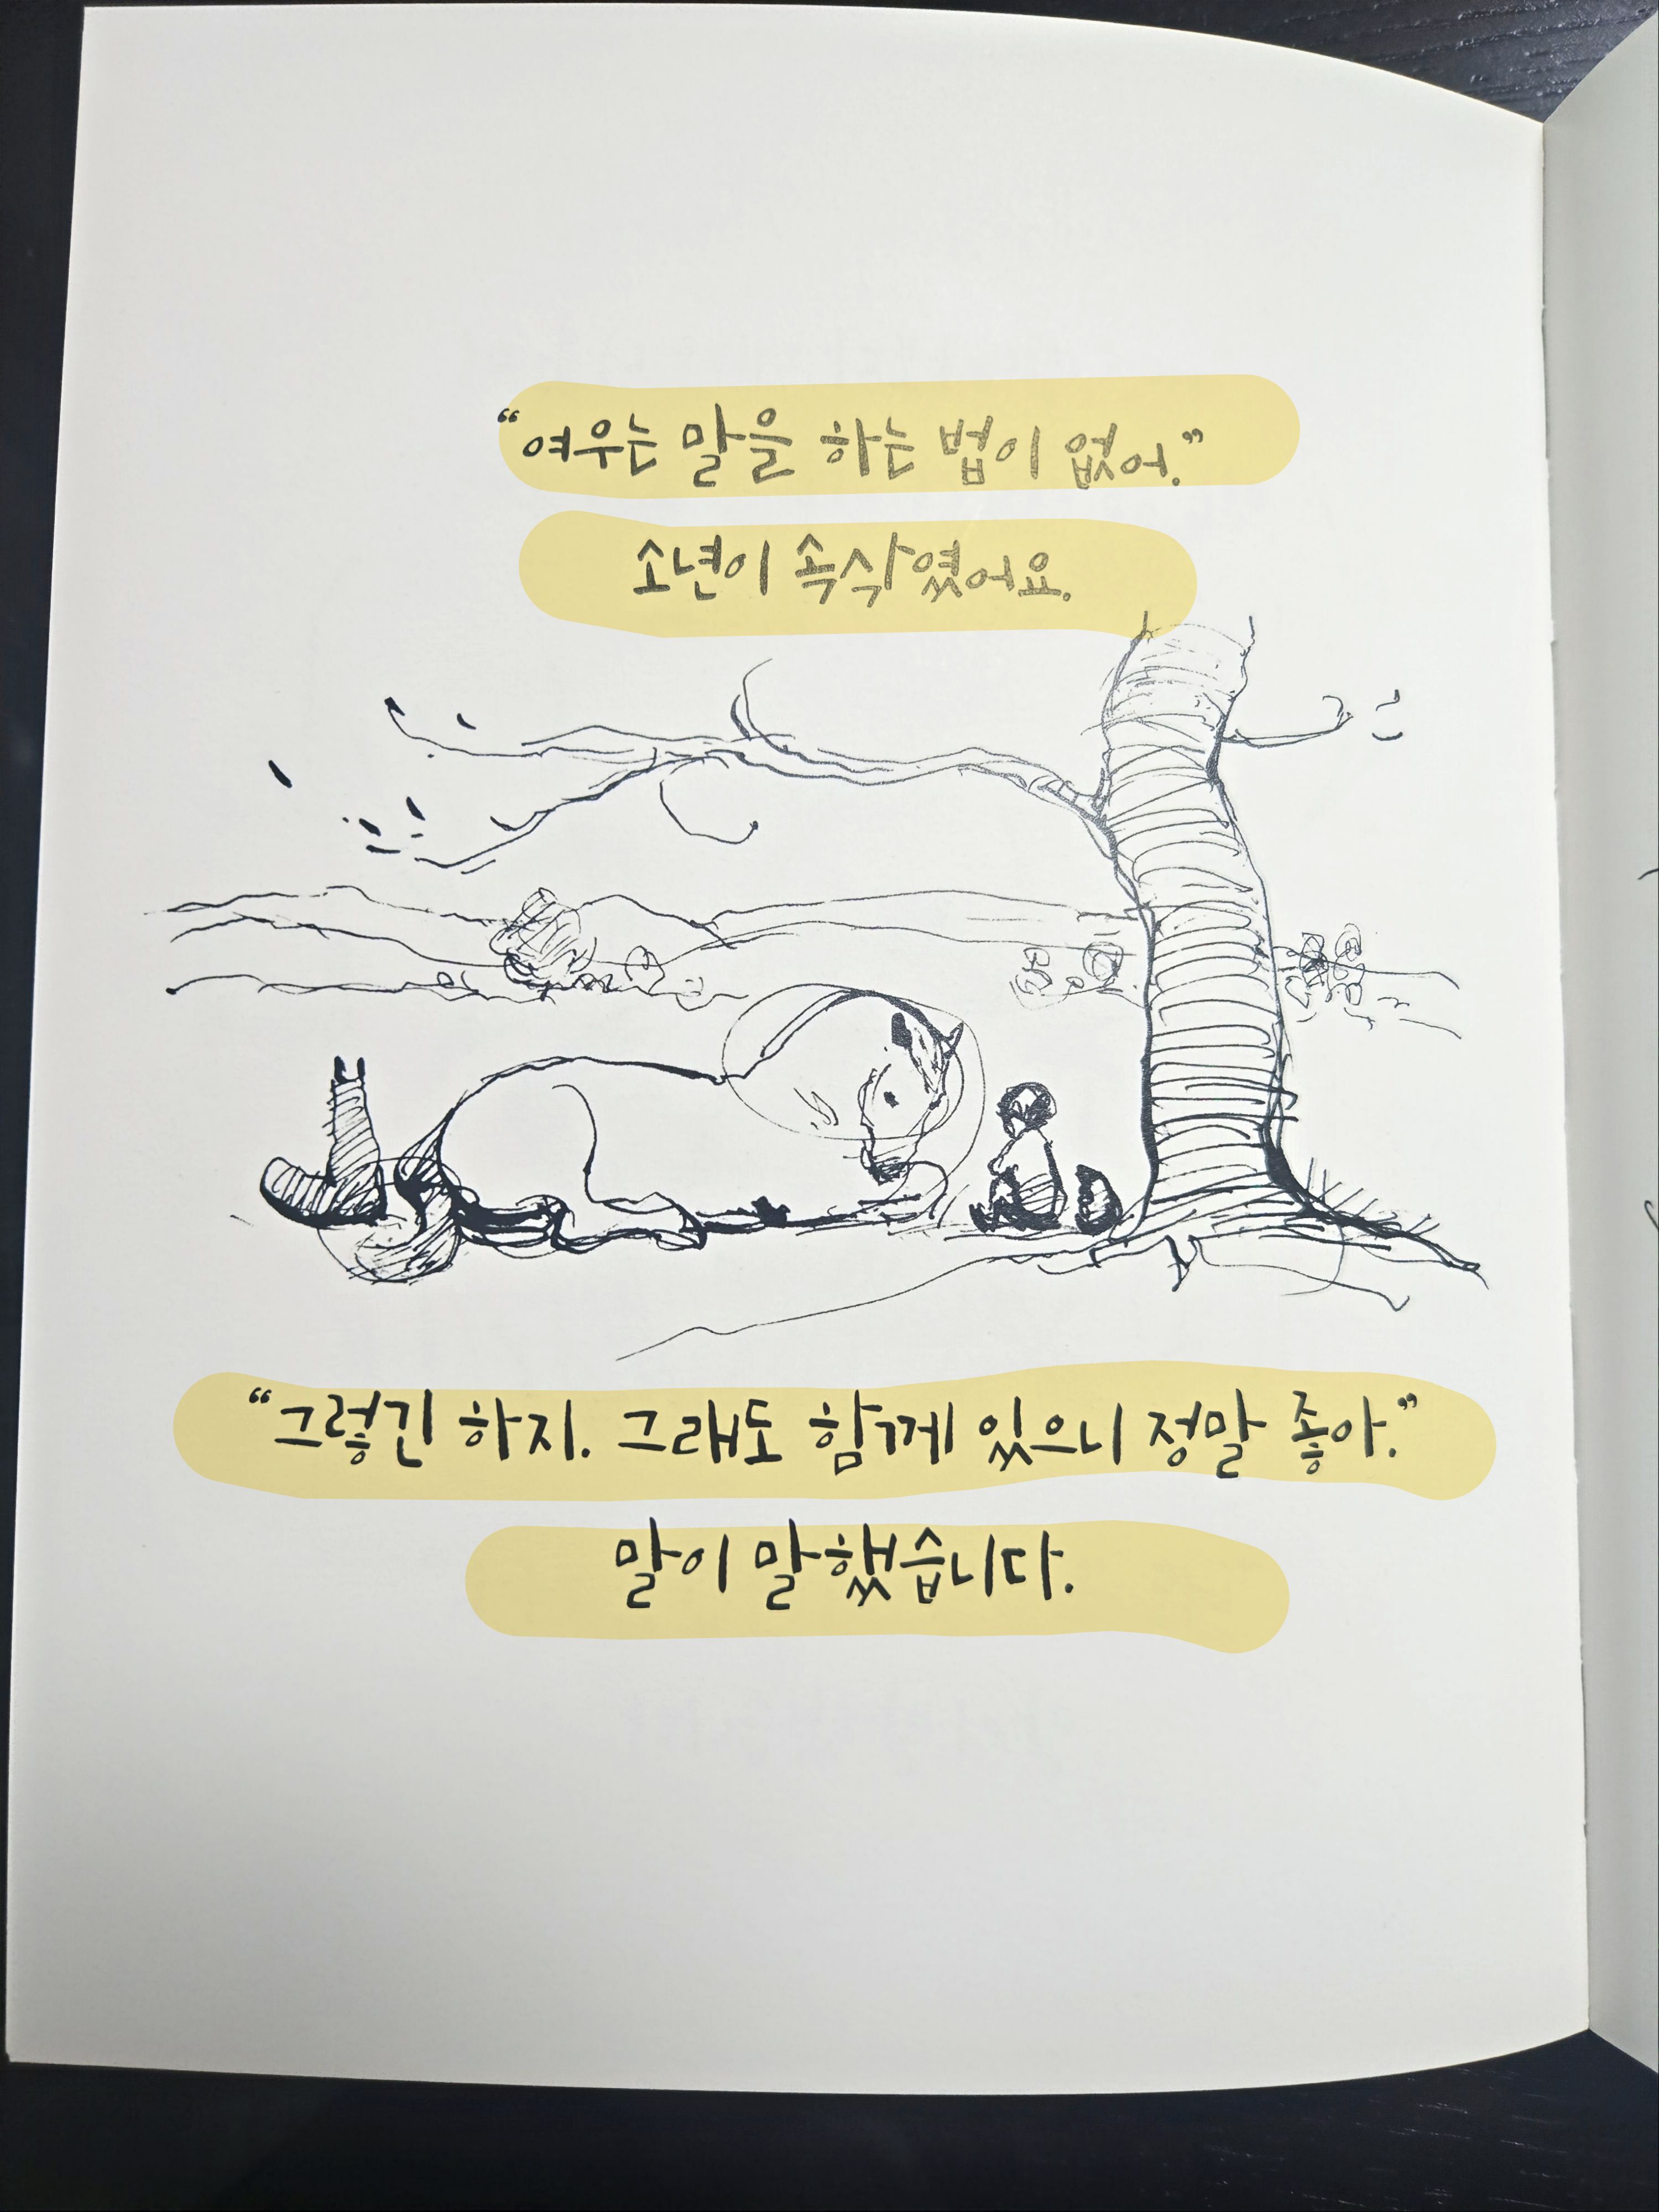 “여우는 말을 하는 법이 없어.”
소년이 속삭였어요.
“그렇긴 하지. 그래도 함께 있으니 정말 좋아.”
말이 말했습니다.